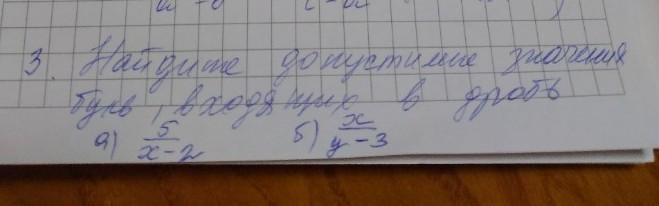 3. Найдите допустимые значения
букв, входящих в дробь
а) 5/(x-2) б) x/(y-3)